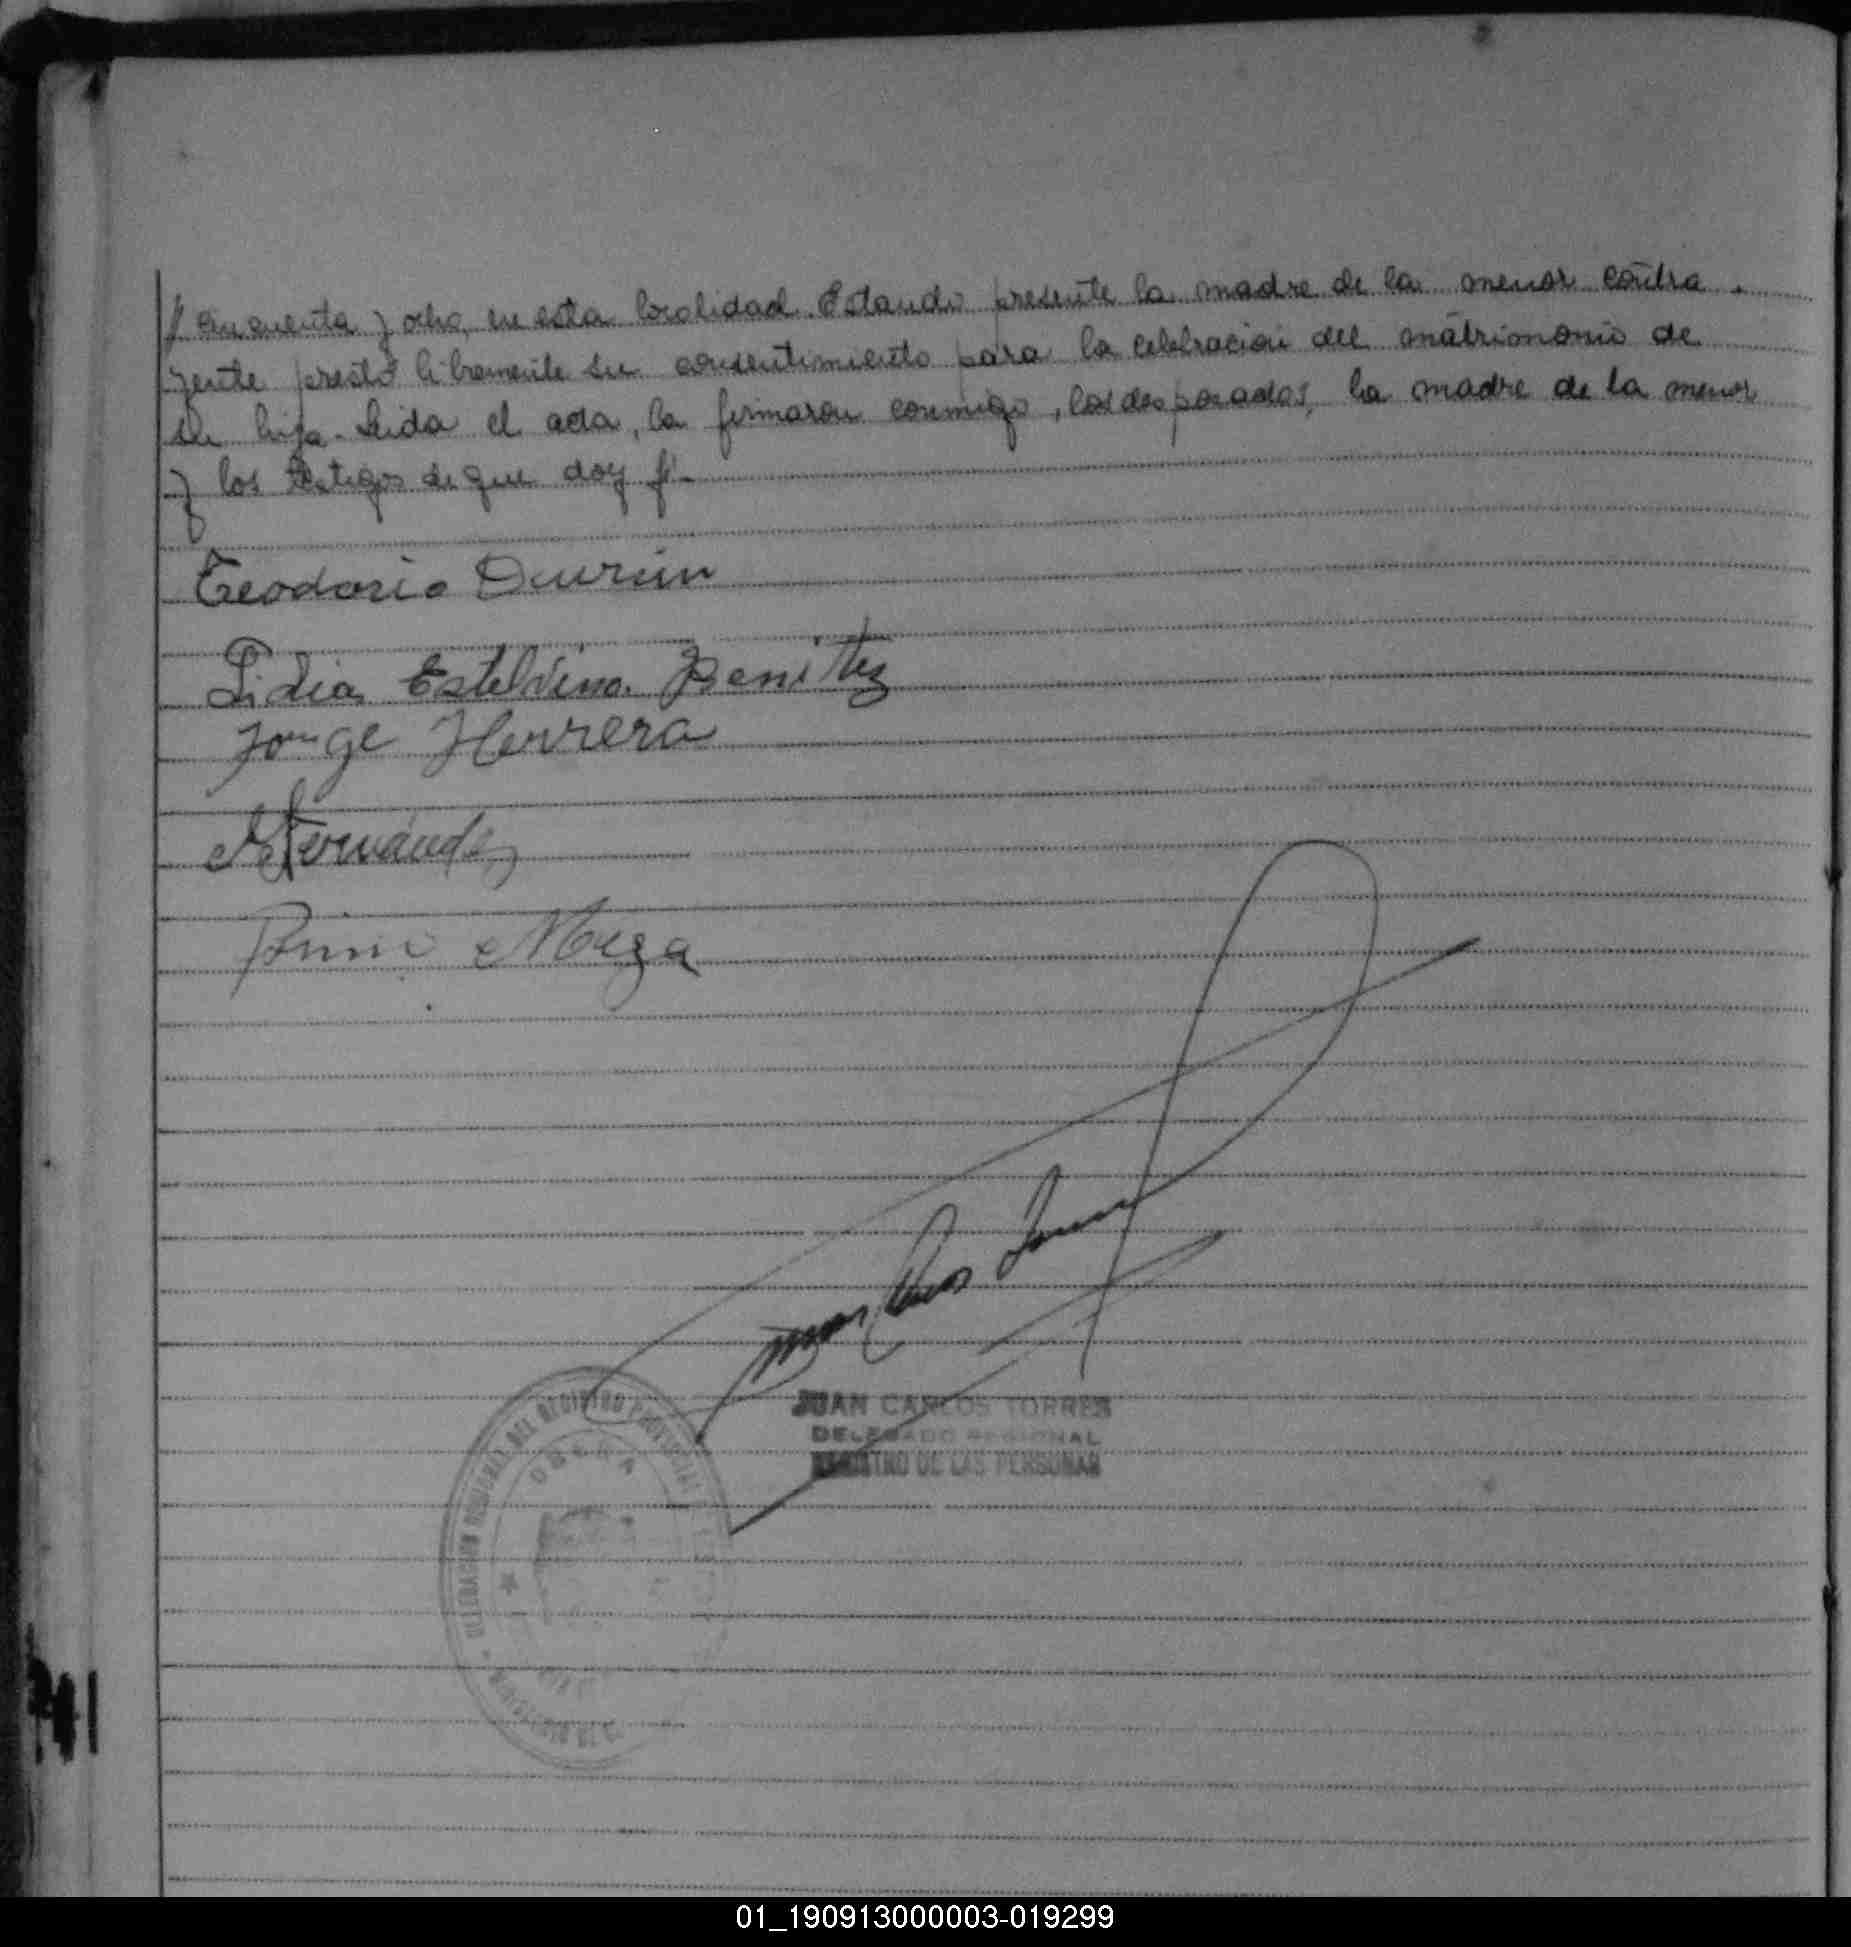 // cincuenta y ocho, en esta localidad. Estando presente la madre de la menor contra -
yente prestó libremente su consentimiento para la celebración del matrimonio de
su hija. Leida el acta, la firmaron conmigo, los desposados, la madre de la menor
y los testigos de que doy fé.
Teodorio Durán
Lidia Estelvina Benitez
Jorge Herrera
Fernández
Meza
Juan Carlos Torres
JUAN CARLOS TORRES
DELEGADO REGIONAL
REGISTRO DE LAS PERSONAS
DELEGACION REGIONAL DEL REGISTRO PROVINCIAL
OBERA
01_190913000003-019299